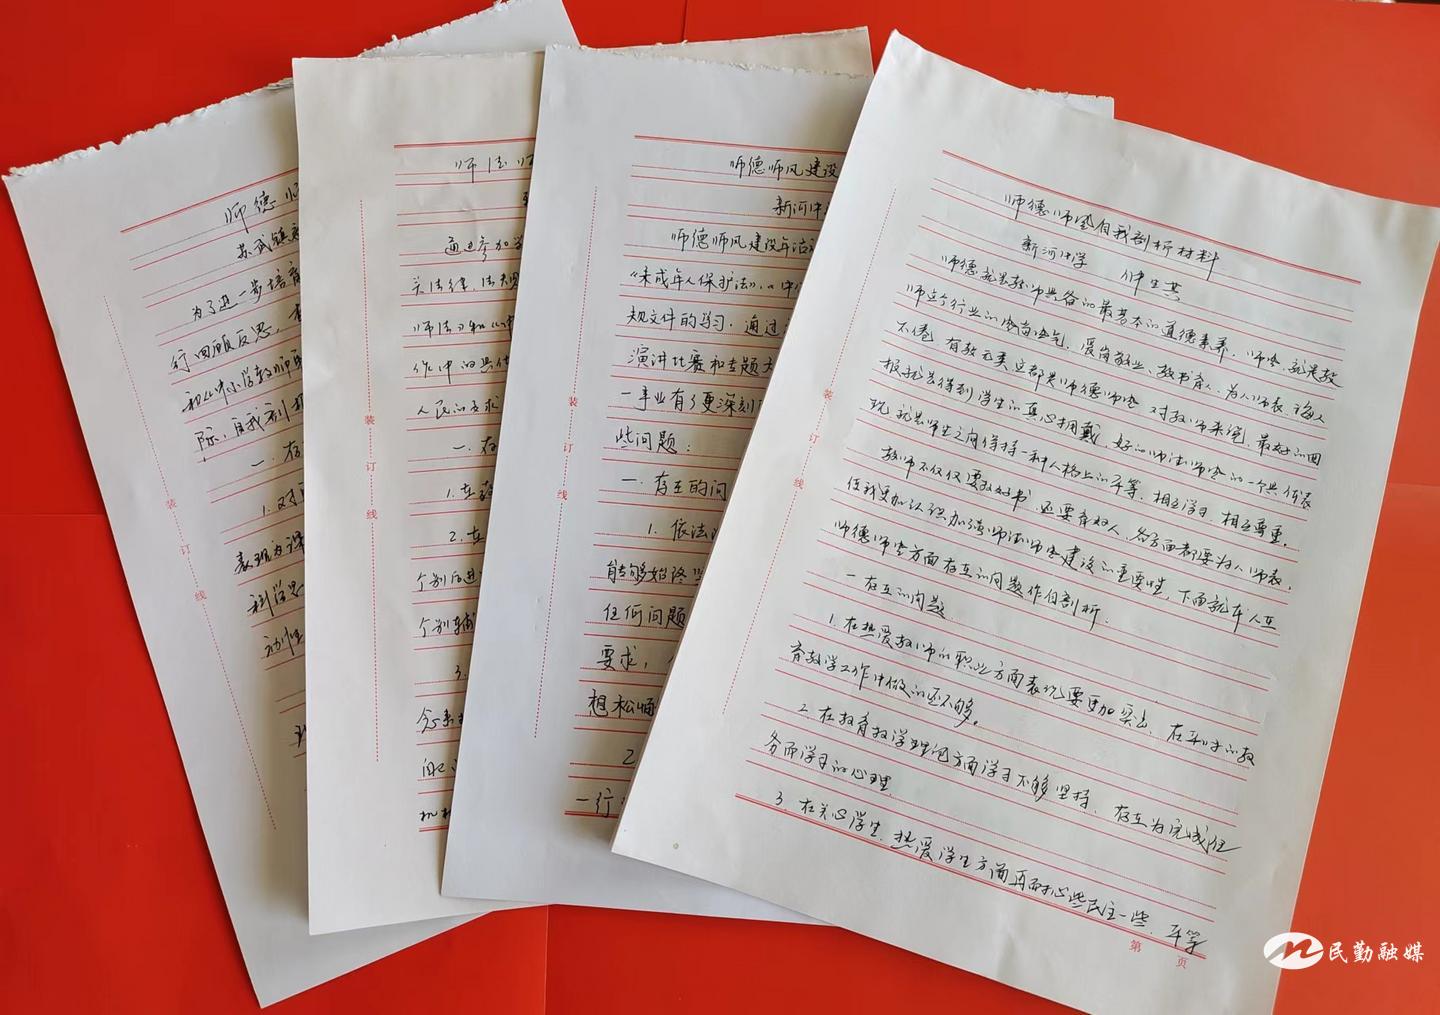 师德师
苏武镇
为了进一步培育
行回顾反思,
和《中小学教师
际,自我剖
一、存
1.对
表现为课
科学思
动性
装
订
线
师德师
通过参加学
关法律、法规
师法》和《中
作中的具体
人民的要求
一、在
1.在教
2.在
个别后进
个别辅
3.
念系
自己
机
装
订
线
师德师风建设
新河中
师德师风建设年活
《未成年人保护法》,《中
规文件的学习,通过
演讲比赛和专题大
一事业有了更深刻
些问题:
一、存在的问
1.依法
能够始终坚
任何问题
要求,
想松懈
2
一行
装
订
线
师德师风自我剖析材料
新河中学 生其
师德就是教师具备的最基本的道德素养,师风,就是教
师这个行业的风尚风气,爱岗敬业,教书育人,为人师表,诲人
不倦,有教无类,这都是师德师风,对教师来说,最好的回
报就是得到学生的真心拥戴,好的师德师风的一个具体表
现就是师生之间保持一种人格上的平等,相互学习,相互尊重。
教师不仅仅要教好书,还要育好人,各方面都要为人师表,
使我更加认识加强师德师风建设的重要性,下面就本人在
师德师风方面存在的问题作自剖析:
一存在的问题
1.在热爱教师的职业方面表现要更加突出,在平时的教
育教学工作中做的还不够。
2.在教育教学理念方面学习不够坚持,存在为完成任
务而学习的心理。
3.在关心学生,热爱学生方面再耐心些民主一些,平等
装
订
线
第 页
民勤融媒